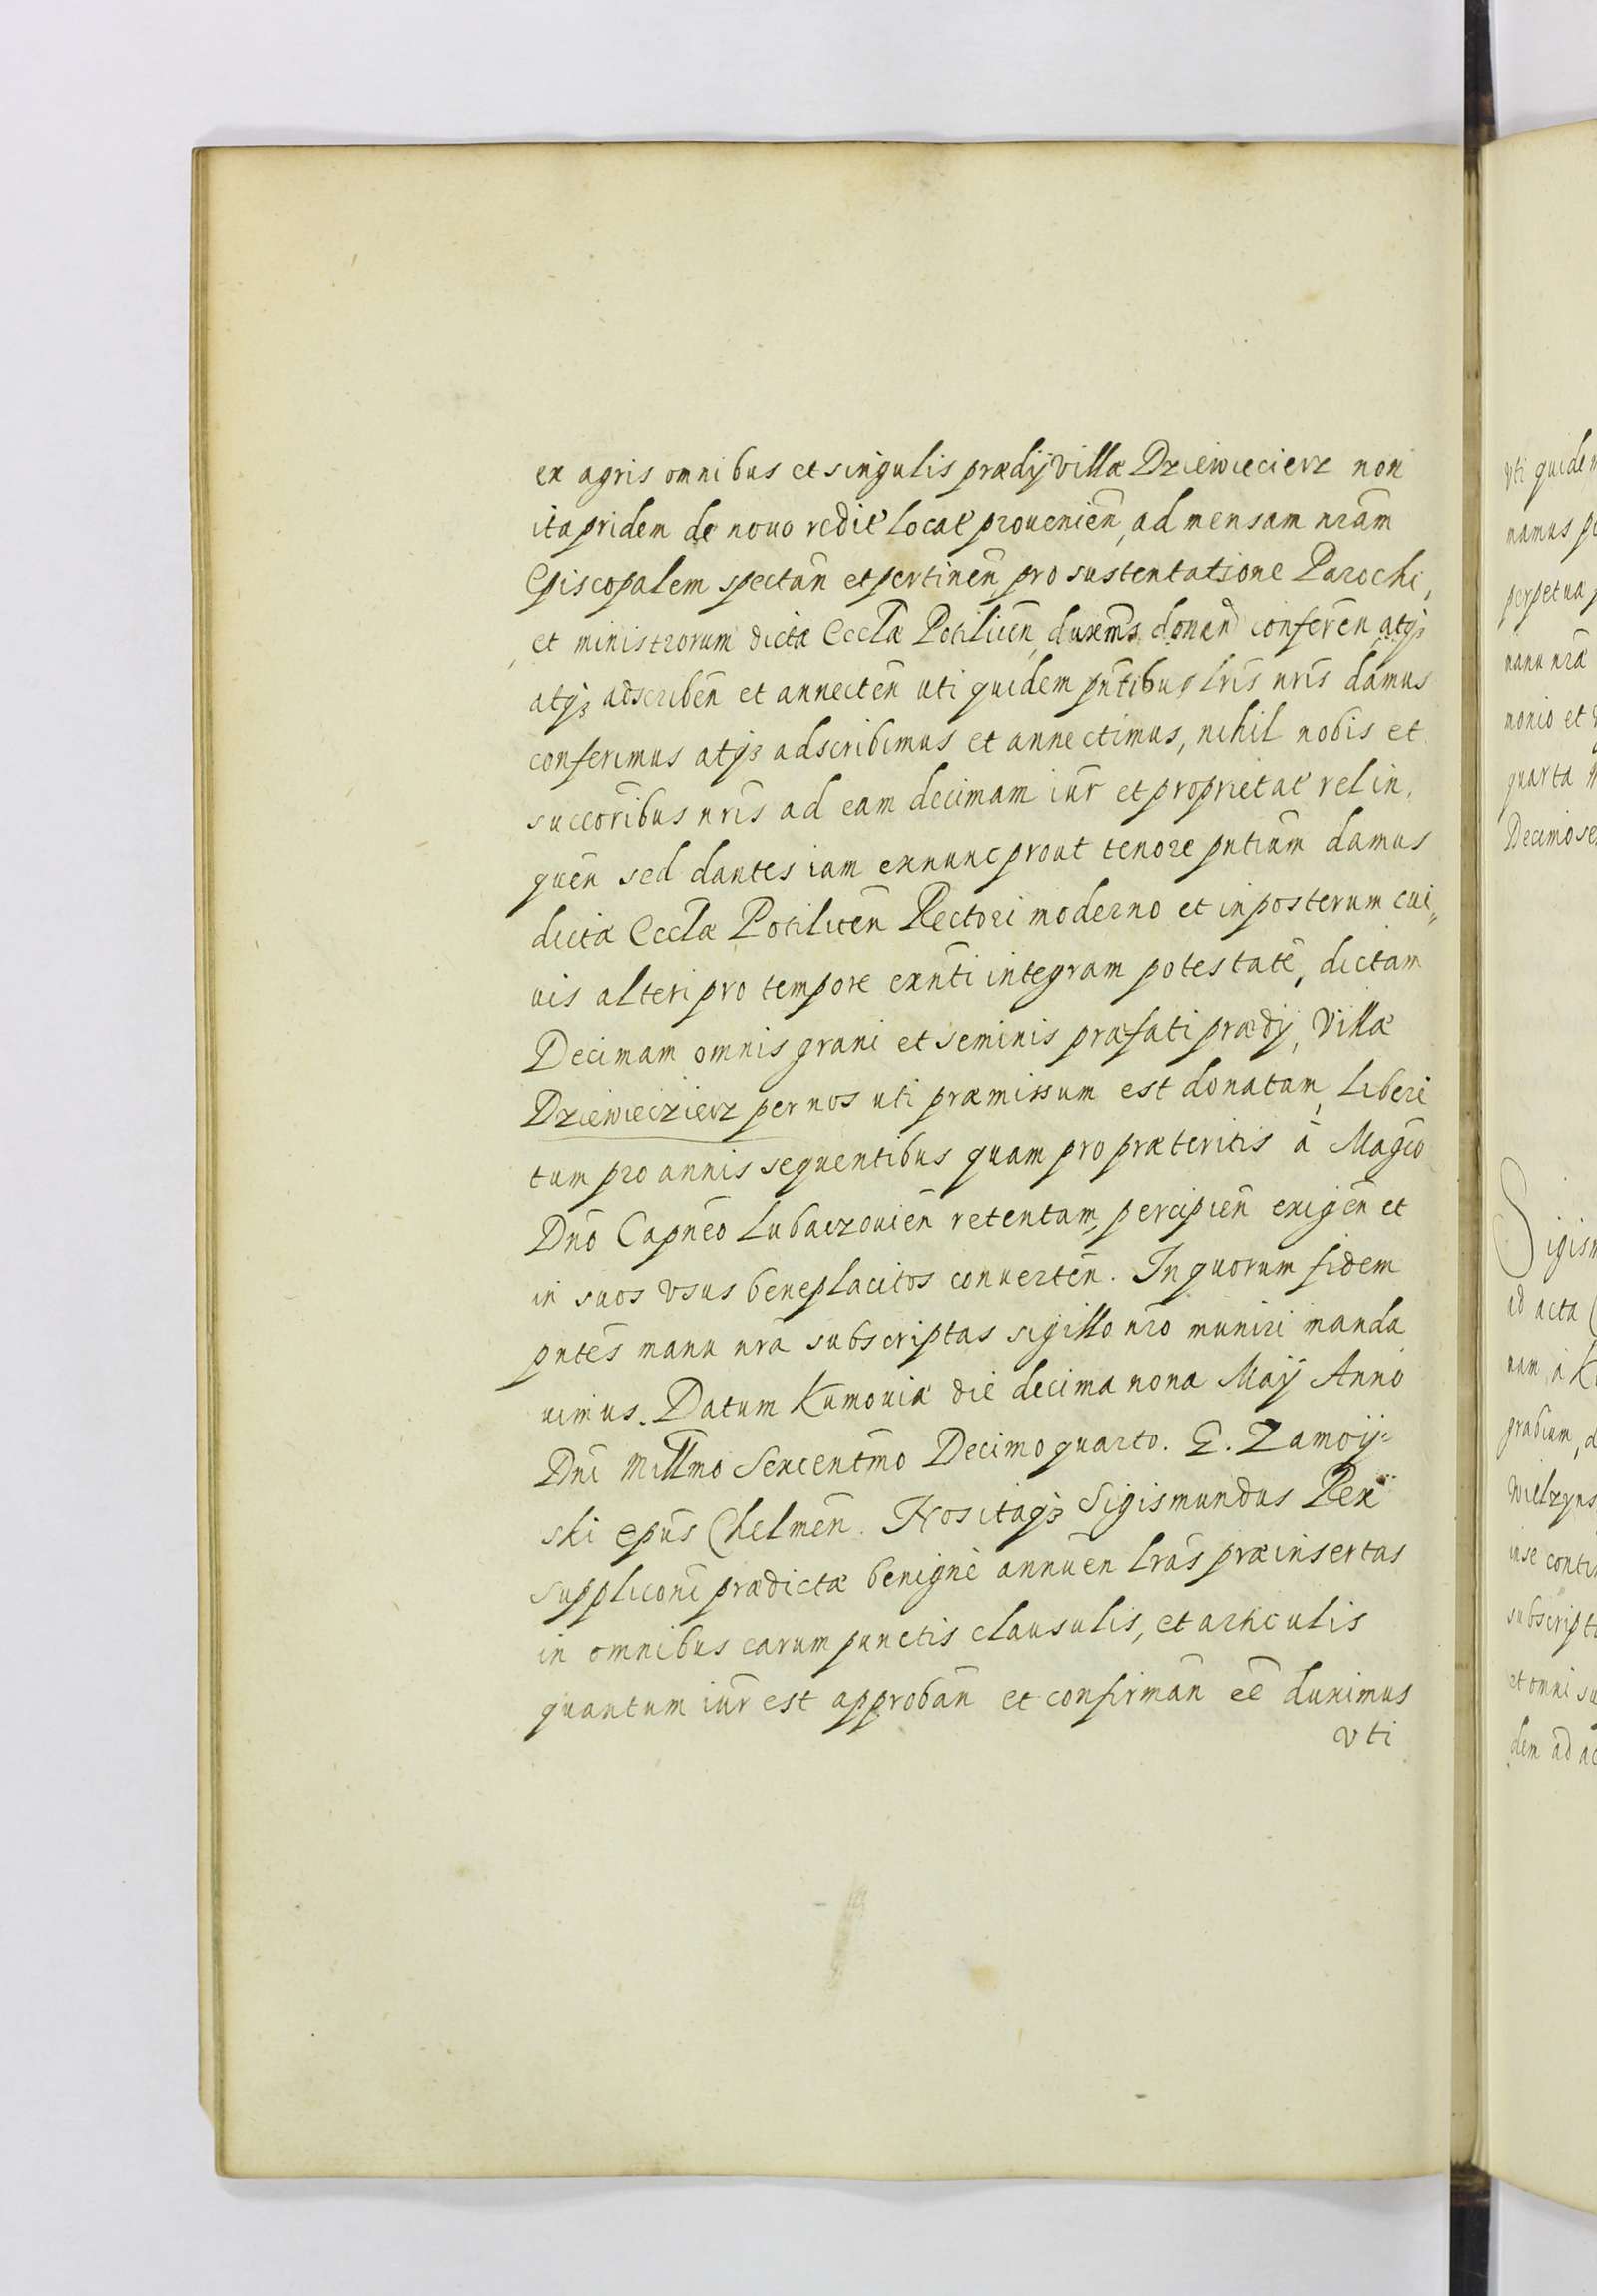 ex agris omnibus et singulis prædij villæ Dziewiecierz non
ita pridem de novo redie locat provenien̄, ad mensam nr̄am
Episcopalem spectan̄ et pertinen̄, pro sustentatione Parochi,
et ministrorum dictæ Eccl̄æ Potilicen̄, duxem̄s donan̄d conferen̄ atqꝫ
atqꝫ adscriben̄ et annecten̄ uti quidem pn̄tibus lr̄is nr̄is damus
conferimus atqꝫ adscribimus et annectimus, nihil nobis et
succor̄ibus nr̄is ad eam decimam iur̄ et proprietat relin,
quen̄ sed dantes iam exnunc prout tenore pn̄tium damus
dictæ Eccl̄æ Potilicen̄ Rectori moderno et inposterum cui,,
vis alteri pro tempore exn̄ti integram potestatē, dictam
Decimam omnis grani et seminis præfati prædij, Villæ
Dziewieczierz per nos uti præmissum est donatam, liberè
tum pro annis sequentibus quam pro præteritis à Magc̄o
Dn̄o Capn̄eo Lubaczovien̄ retentam, percipien̄ exigen̄ et
in suos vsus beneplacitos converten̄. In quorum fidem
pn̄tes manu nr̄a subscriptas sigillo nr̄o muniri manda
vimus. Datum Kumoviæ die decima nona Maij Anno
Dn̄i mill̄mo Sexcent̄mo Decimo quarto. G. Zamoij=
ski ep̄us Chelmen̄. Nos itaqꝫ Sigismundus Rex
supplicon̄i prædictæ benignè annuen̄ lr̄as præinsertas
in omnibus earum punctis clausulis, et articulis
quantum iur̄ est approban̄ et confirman̄ eē̄ duximus
vti
vti quidem
namus
perpetuæ
manu nr̄a
monio et
quarta
Decimo se
Sigism
ad acta
nam, à
gradium,
Wielzyns
inse contin
subscript
et omni su
dem ad ac